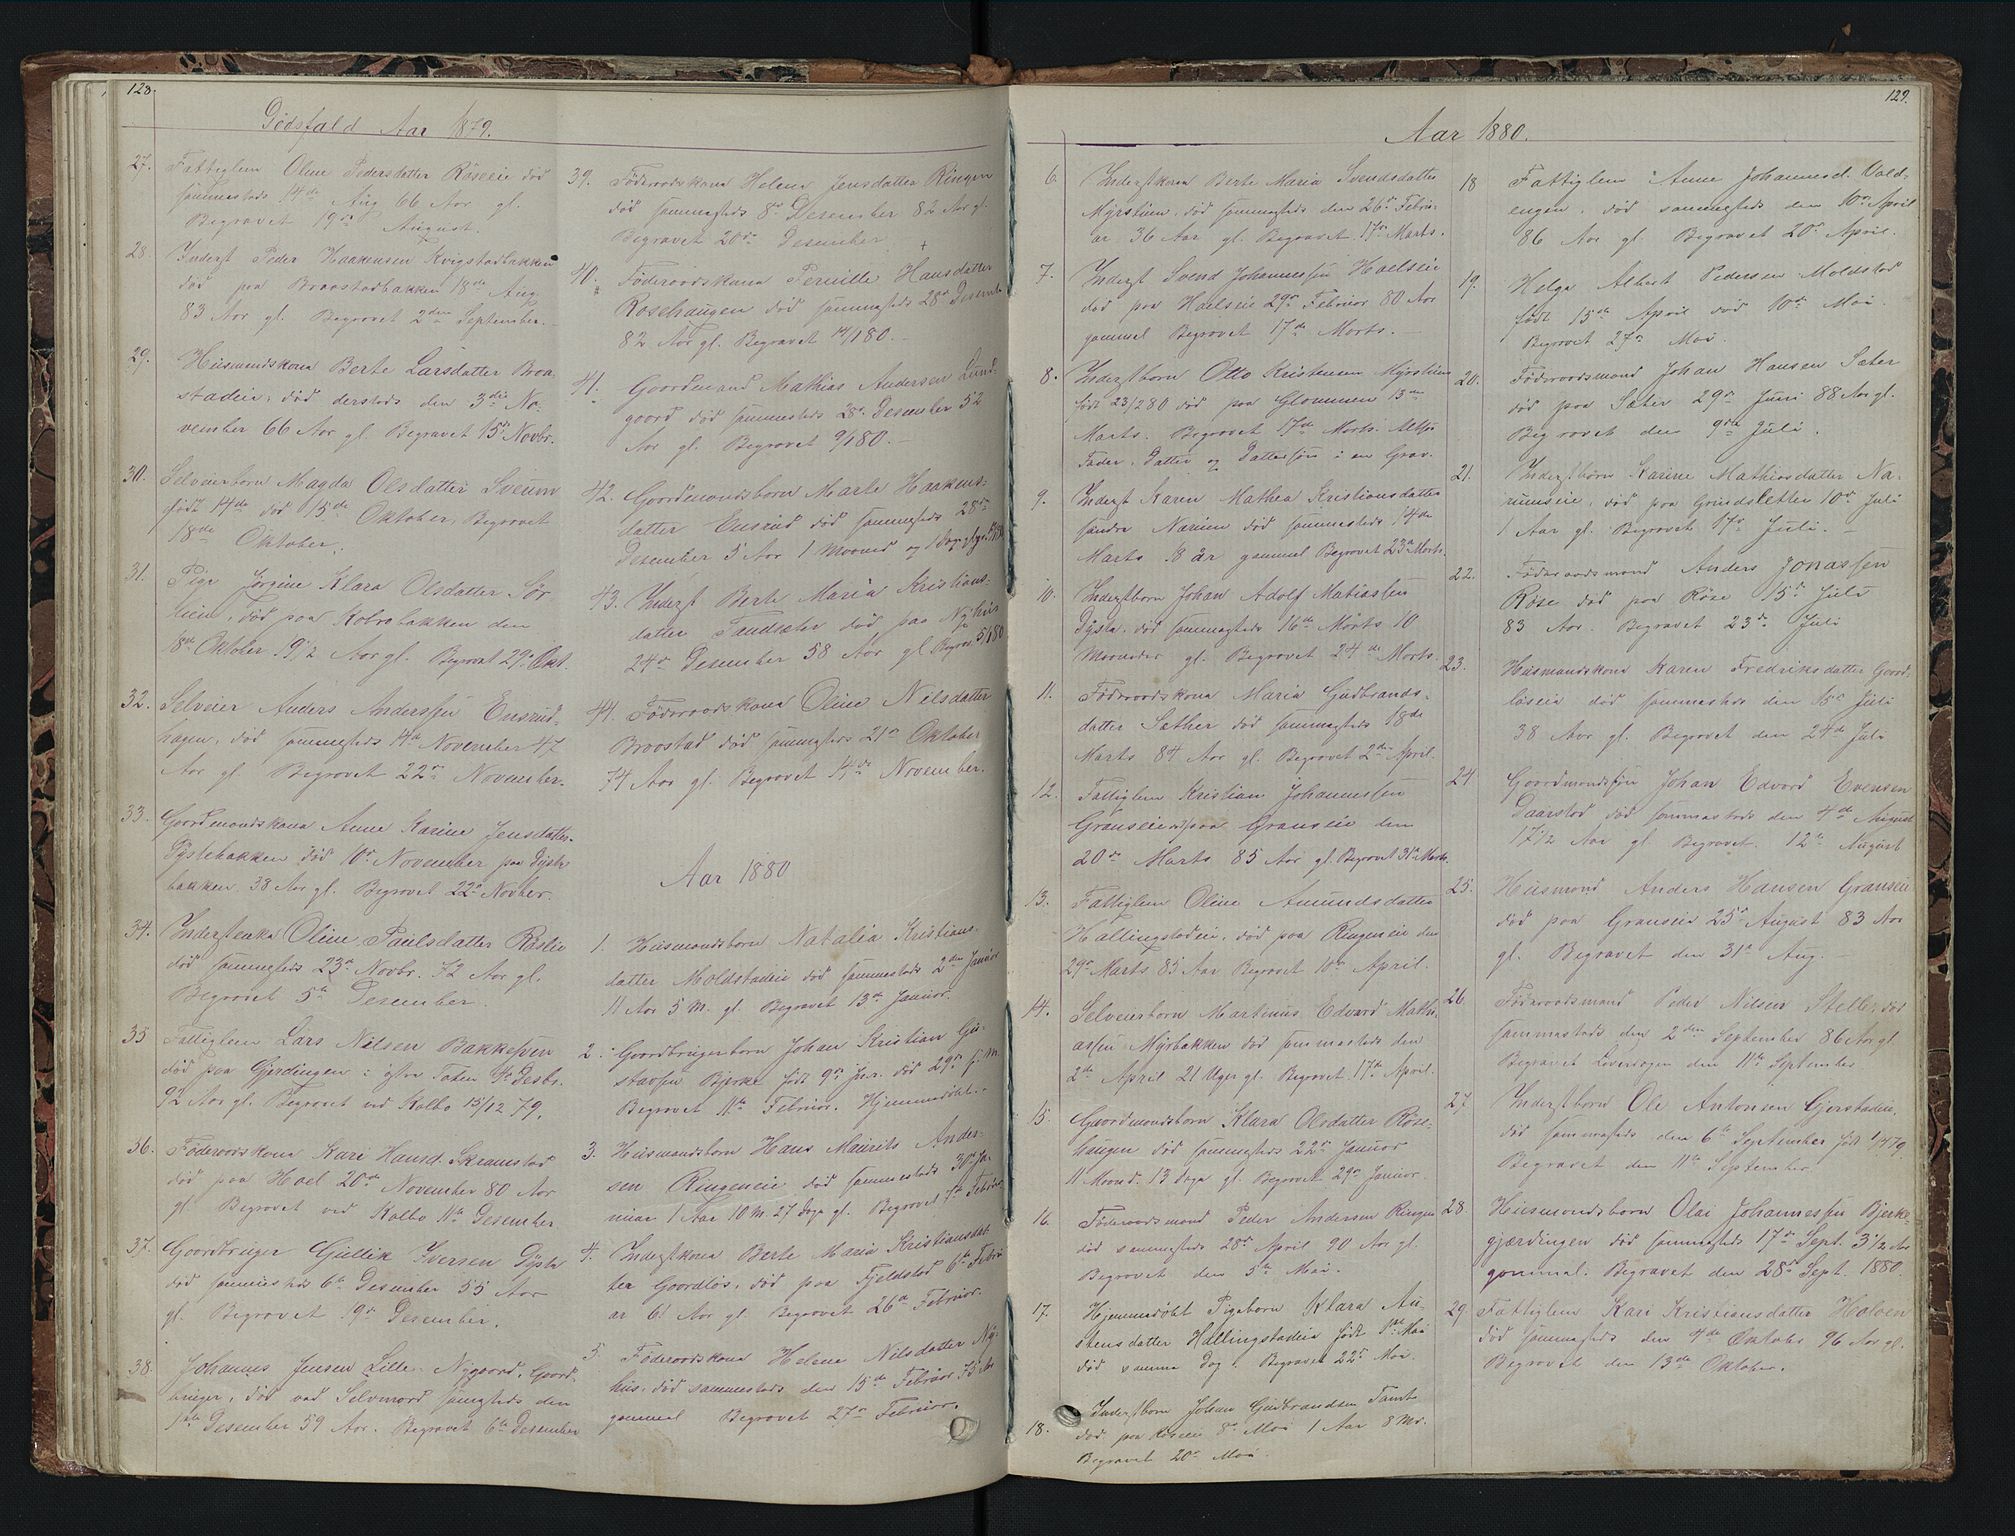 128.
Dödsfald Aar 1879.
27. Fattiglem Oline Pedersdatter Röseeie död
sammesteds 14de Aug 66 Aar gl.
Begravet 19de August.
28. Inderst Peder Haakensen Kvigstadbakken
död paa Braastadbakken 18de Aug.
83 Aar gl. Begravet 2den September.
29. Husmandskona Berte Larsdatter Braa-
stadeie, död dersteds den 3die No-
vember 66 Aar gl. Begravet 15de Novbr.
30. Selveierbarn Magda Olsdatter Sveum
födt 14de död 15de Oktober, Begravet
18de Oktober.
31. Pige Jörgine Klara Olsdatter Sör
lien, död paa Kolbobakken den
18de Oktober 19 1/2 Aar gl. Begravet 29de Okt.
32. Selveier Anders Anderssen Ensrud-
hagen, död sammesteds 14de November 47
Aar gl. Begravet 22de November.
33. Gaardmandskona Anne Karine Jensdatter
Dystebakken död 10de November paa Dyste-
bakken 38 Aar gl. Begravet 22de Novber.
34. Inderstenka Oline Paulsdatter Röslie
död sammesteds 23de Novbr. 72 Aar gl.
Begravet 5te Desember.
35 Fattiglem Lars Nilsen Bakkespen
död paa Gjerdingen i östre Toten 9de Desbr.
92 Aar gl. Begravet ved Kolbo 15/12 79.
36. Föderaadskona Kari Hansd. Skramstad
död paa Hoel 20de November 80 Aar
gl. Begravet ved Kolbo 11te Desember.
37. Gaardbruger Gullik Iversen Dyste
död sammesteds 6te Desember 55 Aar
gl. Begravet 19de Desember.
38. Johannes Jensen Lille Nygaard, Gaard-
bruger, död ved Selvmord sammesteds den
1ste Desember 59 Aar. Begravet 6te Desember
39. Föderaadskona Helene Jensdatter Ringen
död sammesteds 8de Desember 82 Aar gl.
Begravet 20de Desember. +
40. Föderaadskona Pernille Hansdatter
Rosehaugen död sammesteds 28de Desembr
82 Aar gl. Begravet 14/1 80.
41. Gaardmand Mathias Andersen Lund-
gaard död sammesteds 28de Desember 52
Aar gl. Begravet 9/1 80.
42. Gaardmandsbarn Marte Haakens-
datter Ensrud död sammesteds 28de
Desember 5 Aar 1 Maaned og 1 Dag gl.
43. Inderst Berte Maria Kristians-
datter död paa Nyhus
24de Desember 58 Aar gl. Begrav. 5/1 80
44. Föderaadskona Oline Nilsdatter
Braastad död sammesteds 21de Oktober
74 Aar gl. Begravet 14de November.
Aar 1880
1. Husmandsbarn Natalia Kristians-
datter Moldstadeie död sammesteds 2den Januar
11 Aar 5 M. gl. Begravet 13de Januar.
2. Gaardbrugerbarn Johan Kristian Gu-
stavsen Bjerke födt 9de Jan. död 29de s. M.
Begravet 11te Februar. Hjemmedöbt.
3. Husmandsbarn Hans Mauritz Ander-
sen Ringeneie död sammesteds 30de Ja-
nuar 1 Aar 10 M. 27 Dage gl. Begravet 7de Februar
4. Inderstkona Berte Maria Kristiansdat
ter Gaardlös, död paa Fjeldstad 6te Febru
ar 61 Aar gl. Begravet 26de Februar.
5. Föderaadskona Helene Nilsdatter Ny-
hus, död sammesteds den 15de Februar 75 Aar
gammel Begravet 27de Februar.
129.
Aar 1880.
6. Inderstkona Berte Maria Svendsdatter
Myrstuen, död sammesteds den 26de Febru-
ar 36 Aar gl. Begravet 17de Marts.
7. Inderst Svend Johannessen Hoelseie
död paa Hoelseie 29de Februar 80 Aar
gammel Begravet 17de Marts.
8. Inderstbarn Otto Kristensen Myrstuen
födt 23/2 80 död paa Glommen 13de
Marts. Begravet 17de Marts. Altsaa
Fader, Datter og Dattersøn i en Grav.
9. Inderst Karen Mathea Kristiansdatter
söndre Narum död sammesteds 14de
Marts 18 år gammel Begravet 23de Marts.
10. Inderstbarn Johan Adolf Matiassen
Dyste, död sammesteds 16de Marts 10
Maaneder gl. Begravet 24de Marts.
11. Föderaadskona Maria Gudbrands-
datter Sæther död sammesteds 18de
Marts 84 Aar gl. Begravet 2den April.
12. Fattiglem Kristian Johannessen
Granseie död paa Granseie den
20de Marts 85 Aar gl. Begravet 31te Marts.
13. Fattiglem Oline Amundsdatter
Hallingstadeie, död paa Ringeneie den
29de Marts 85 Aar Begravet 10de April.
14. Selveierbarn Martinus Edvard Mathi-
assen Myrbakken död sammesteds den
2den April 21 Uger gl. Begravet 17de April.
15. Gaardmandsbarn Klara Olsdatter Röse-
haugen död sammesteds 22de Januar
11 Maand. 13 Dage gl. Begravet 29de Januar.
16. Föderaadsmand Peder Andersen Ringen
död sammesteds 28de April 90 Aar gl.
Begravet den 5te Mai.
17. Hjemmedöbt Pigebarn Klara Au-
stensdatter Hallingstadeie födt 1ste Mai
död samme Dag. Begravet 22de Mai.
18. Inderstbarn Johan Gudbrandsen Tømte
död paa Röseeie 8de Mai 1 Aar 8 Md.
Begravet 20de Mai.
18 Fattiglem Anne Johannesd. Vold-
engen, död sammesteds den 10de April
86 Aar gl. Begravet 20de April.
19. Helga Albert Pedersen Moldstad
födt 15de April död 10de Mai.
Begravet 27de Mai.
20. Föderaadsmand Johan Hansen Sæter
död paa Sæter 29de Juni 88 Aar gl.
Begravet den 9de Juli.
21. Inderstbarn Karine Mathiasdatter Na-
rumseie, död paa Grindsletten 10de Juli
1 Aar gl. Begravet 17de Juli.
22. Föderaadsmand Anders Jonassen
Röse död paa Röse 15de Juli
83 Aar. Begravet 23de Juli
23. Husmandskona Karen Fredriksdatter Gaard-
löseie död sammesteds den 15de Juli
38 Aar gl. Begravet den 24de Juli
24 Gaardmandssön Johan Edvard Evensen
Daarstad död sammesteds den 4de August
17 1/2 Aar gl. Begravet 12te August
25. Husmand Anders Hansen Granseie
död paa Granseie 25de August 83 Aar
gl. Begravet den 31te Aug.
26. Föderaadsmand Peder Nilsen Stelle, död
sammesteds den 2den September 86 Aar gl.
Begravet den 11te September
27. Inderstbarn Ole Antonsen Gjerstadeie,
död sammesteds den 6te September födt 1/4 79.
Begravet den 11te September.
28. Husmandsbarn Olai Johannessen Bjerke-
gjærdingen död sammesteds 17de Sept. 3 1/2 Aar
gammel. Begravet den 28de Sept. 1880.
29. Fattiglem Kari Kristiansdatter Halven
död sammesteds den 4de Oktober 96 Aar gl.
Begravet den 13de Oktober.